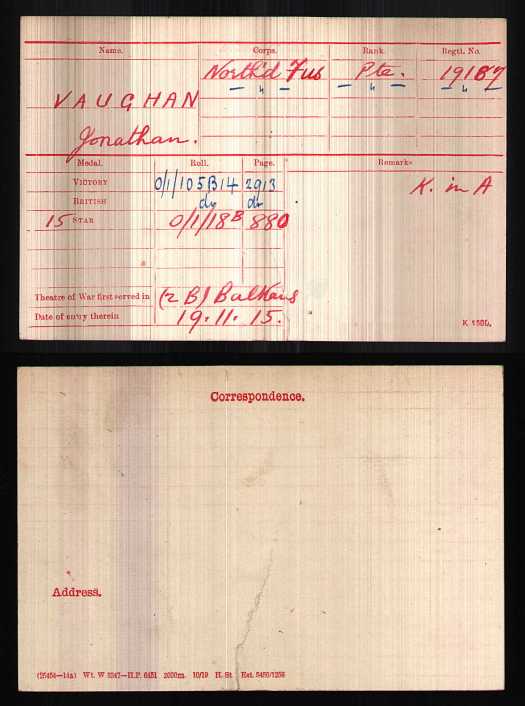 Name. Corps. Rank. Regtl. No.
North'd Fus Pte. 19187
— " — — " — — " —
VAUGHAN
Jonathan.
Medal. Roll. Page. Remarks
VICTORY 0/1/105B14 2913 K. in A
BRITISH do do
15 STAR 0/1/18B 880
Theatre of War first served in (2B) Balkans
Date of entry therein 19.11.15.
K 1380.
Correspondence.
Address.
(25454—14a) Wt. W 5347—H.P. 6451 2000m. 10/19 H. St Est. 5450/1258